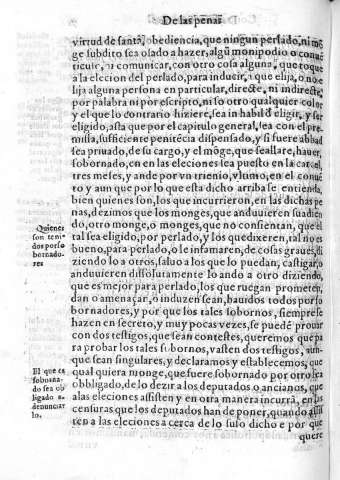 De las penas
virtud de santa, obediencia, que ningun perlado, ni mõ
ge subdito sea osado a hazer, algũ monipodio o conuẽ
ticulo, ni comunicar, con otro cosa alguna, que toque
a la eleccion del perlado, para inducir, a que elija, o no e
lija alguna persona en particular, directe, ni indirecte,
por palabra ni por escripto, ni so otro qualquier color
y el que lo contrario hiziere, sea inhabil õ eligir, y ser
eligido, asta que por el capitulo general, sea con pre
missa, sufficiente penitẽcia dispensado, y si fuere abbad
sea priuado, de su cargo, y el mõge, que se allare, hauer,
sobornado, en en las eleciones sea puesto en la carcel,
tres meses, y ande por vn trienio, vltimo, en el conuẽ
to y aun que por lo que esta dicho arriba se entienda,
bien quienes son, los que incurrieron, en las dichas pe
nas, dezimos que los monges, que anduuieren suadien
do, otro monge, o monges, que no consientan, que el
tal sea eligido, por perlado, y los que dixeren, tal no es
bueno, para perlado, o le infamaren, de cosas graues, di
ziendo lo a otros, saluo a los que lo puedan, castigar, o
anduuieren dissolutamente loando a otro diziendo,
que es mejor para perlado, los que ruegan prometen,
dan o amenaçan, o induzen sean, hauidos todos por so
bornadores, y por que los tales sobornos, siempre se
hazen en secreto, y muy pocas vezes, se puedẽ prouar
con dos testigos, que sean contestes, queremos que pa
ra probar los tales sobornos, basten dos testigos, aun-
que sean singulares, y declaramos y establecemos, que
qual quiera monge, que fuere sobornado por otro sea
obbligado, de lo dezir a los deputados o ancianos, que
a las eleciones assisten y en otra manera incurra, en las
censuras que los deputados han de poner, quando assis
ten a las eleciones a cerca de lo suso dicho e por que
quere
Quienes
son teni-
dos por so
bornado-
res
El que es
soborna-
do sea ob
ligado a
denunciar
lo.